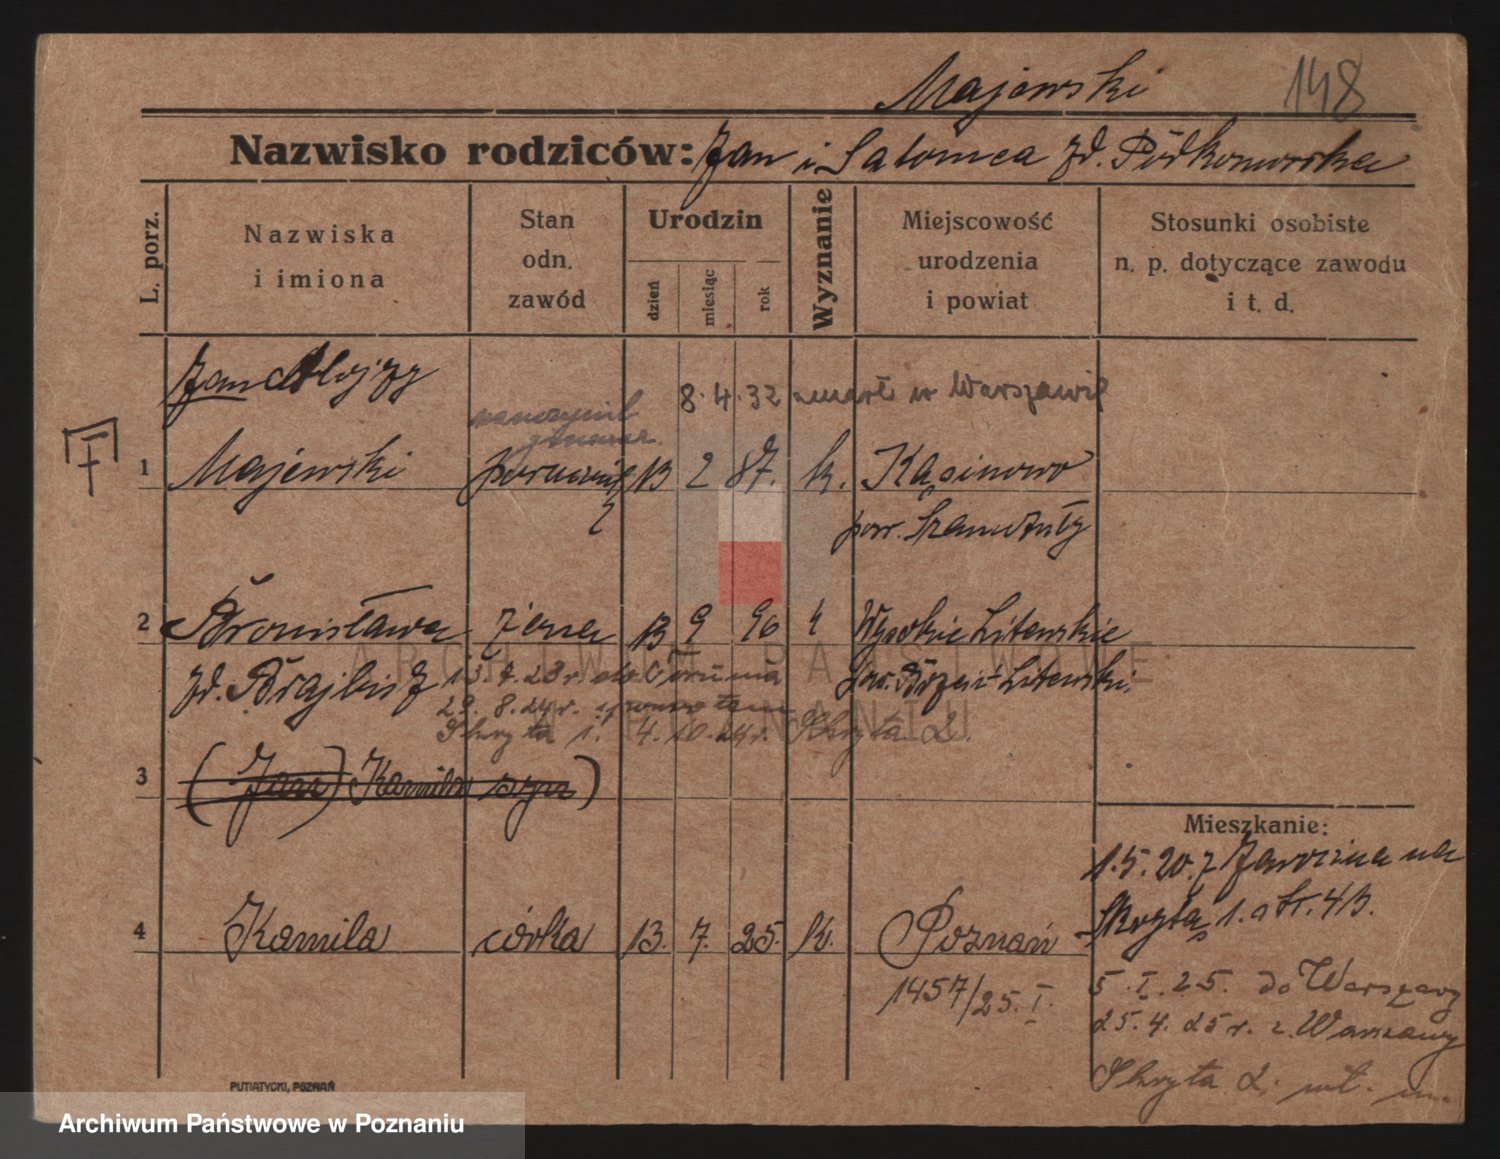 Majewski
148
Nazwisko rodziców: Jan i Salomea zd. Podkomorska
L. porz.
Nazwiska
i imiona
Stan
odn.
zawód
Urodzin
dzień
miesiąc
rok
Wyznanie
Miejscowość
urodzenia
i powiat
Stosunki osobiste
n. p. dotyczące zawodu
i t. d.
Jan Alojzy
8. 4. 32 zmarł w Warszawie
F
1 Majewski porucznik 13 2 87. k. Kąsinowo
pow. Szamotuły
2 Bronisława żona 13 9 90 k Wysokie Litewskie
zd. Brajbisz
pow. Brześć Litewski.
13. 9. 23 r. do Torunia
29. 8. 24 r. z powrotem
Skryta 1. 4. 10. 24 r. Skryta 2.
3 (Jan) Kamila syn)
Mieszkanie:
1. 5. 20. z Jarocina na
Skryta 1.
4 Kamila córka 13. 7. 25. k. Poznań
1457/25. I.
5. I. 25. do Warszawy
25. 4. 25 r. z Warszawy
Skryta 2.
ARCHIWUM PAŃSTWOWE
W POZNANIU
PUTIATYCKI, POZNAŃ
Archiwum Państwowe w Poznaniu